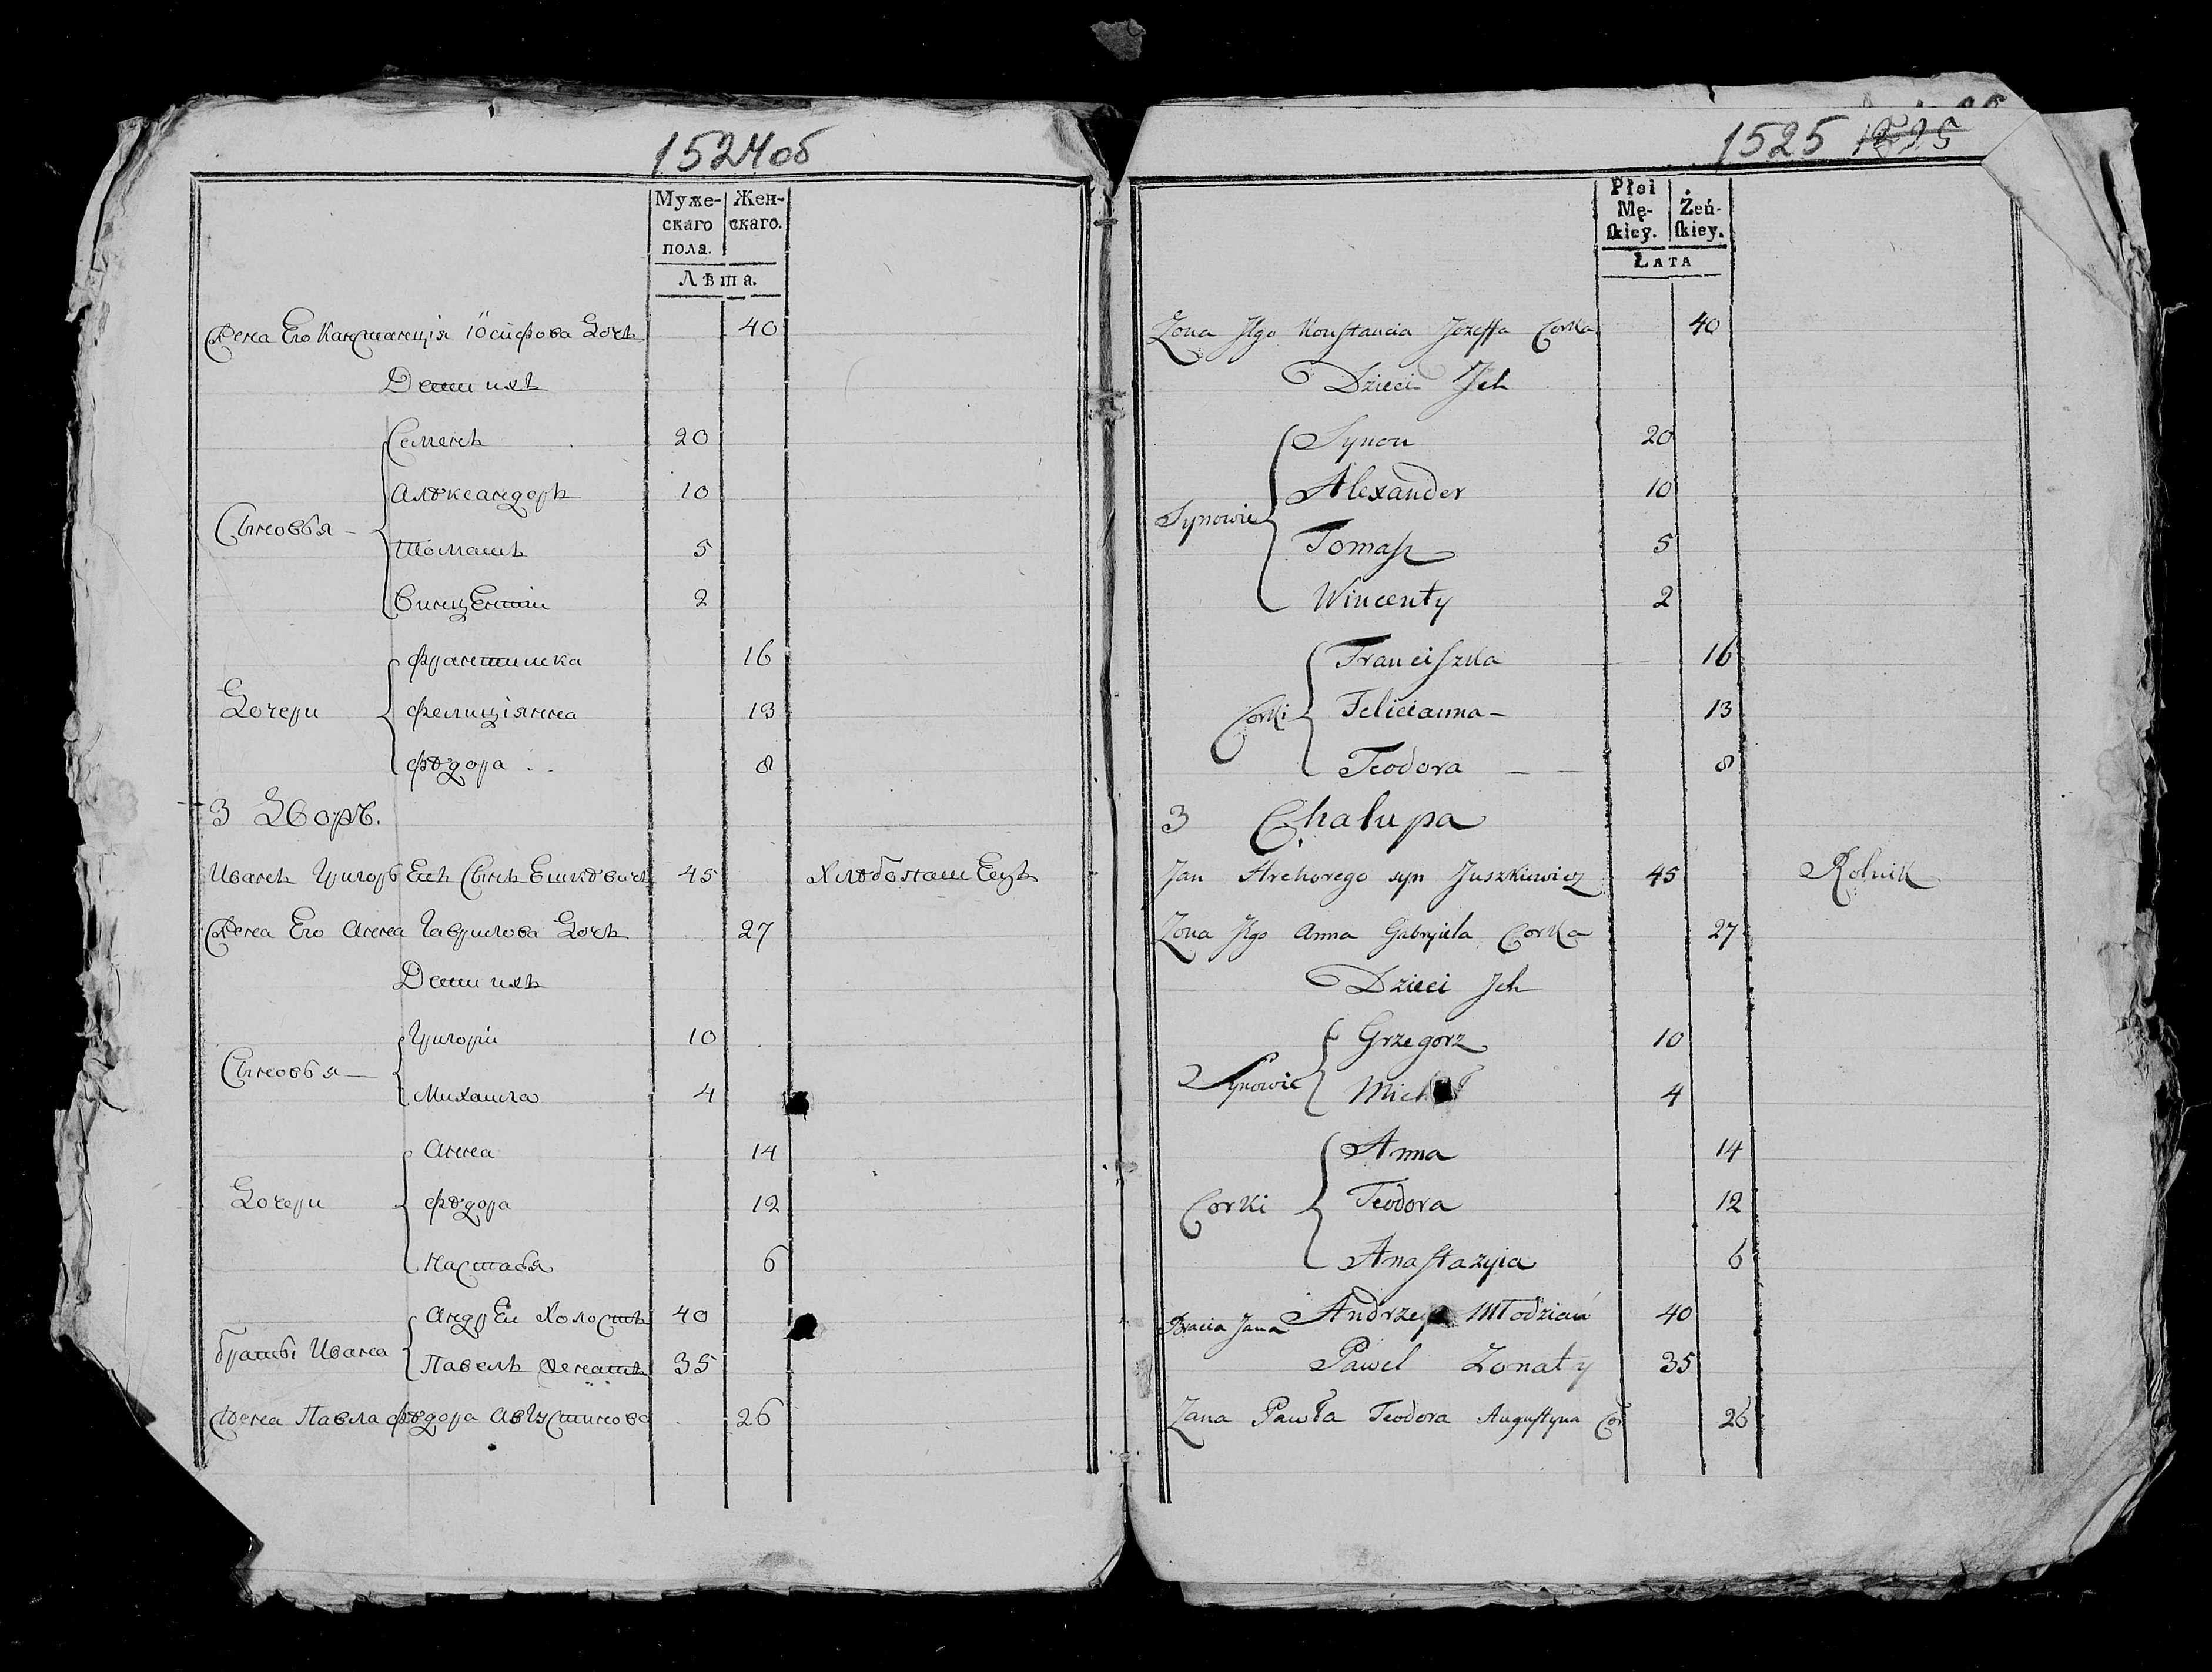 1524 об
Муже-
скаго
пола.
Жен-
скаго.
Лѣта.
Жена Его Канстанція Іосифова Дочь 40
Дети ихъ
Сыновья
Семенъ 20
Алѣксандоръ 10
Томашъ 5
Винцентіи 2
Дочери
Францишка 16
Фелиціянна 13
Фѣдора 8
3 Дворъ.
Иванъ Григорьевъ Сынъ 45 Хлѣбопашецъ
Жена Его Анна Гаврилова Дочь 27
Дети ихъ
Сыновья
Григоріи 10
Михаила 4
Дочери
Анна 14
Фѣдора 12
Настасья 6
братьі Ивана
Андреи Холостъ 40
Павелъ Женатъ 35
Жена Павла Фѣдора Августинова 26
1525 1525
Płci
Mę-
ſkiey.
Żeń-
ſkiey.
Lata
Zona Jego Konſtancia Jozeffa Corka 40
Dzieci Jch
Synowie
Symon 20
Alexander 10
Tomaſz 5
Wincenty 2
Corki
Franciſzka 16
Felicianna 13
Teodora 8
3 Chalupa
Jan syn Juszkiewicz 45 Rolnik
Zona Jego Anna Gabryiela Corka 27
Dzieci Jch
2 Synowie
Grzegorz 10
4
Corki
Anna 14
Teodora 12
Anaſtazyia 6
Bracia Jana Andrzey Młodzian 40
Pawel Zonaty 35
Zana Pawła Teodora Auguſtyna Cor 26